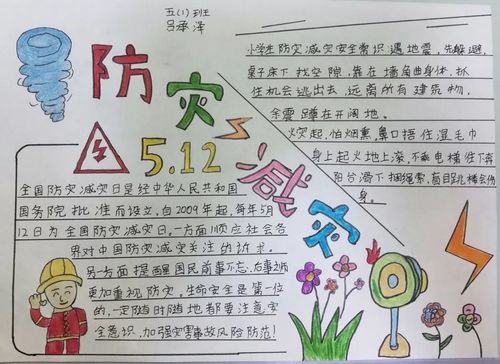 五(1)班
吕承泽
防灾
5.12
减灾
小学生防灾减灾安全常识遇地震,先躲避,
桌子床下找空隙,靠在墙角曲身体,抓
住机会逃出去,远离所有建筑物,
余震蹲在开阔地。
火灾起,怕烟熏,鼻口捂住湿毛巾
身上起火地上滚,不乘电梯往下奔
阳台滑下捆绳索,盲目跳楼会伤
身。
全国防灾减灾日是经中华人民共和国
国务院批准而设立,自2009年起,每年5月
12日为全国防灾减灾日,一方面顺应社会各
界对中国防灾减灾关注的诉求。
另一方面提醒国民前事不忘、后事之师
更加重视防灾,生命安全是第一位
的,一定随时随地都要注意安
全意识,加强灾害事故风险防范!